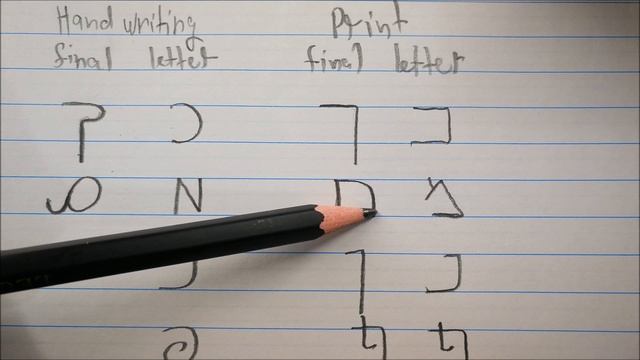 Hand writing Print
final letter final letter
כ ך כ ך
מ ם מ ם
נ ן נ